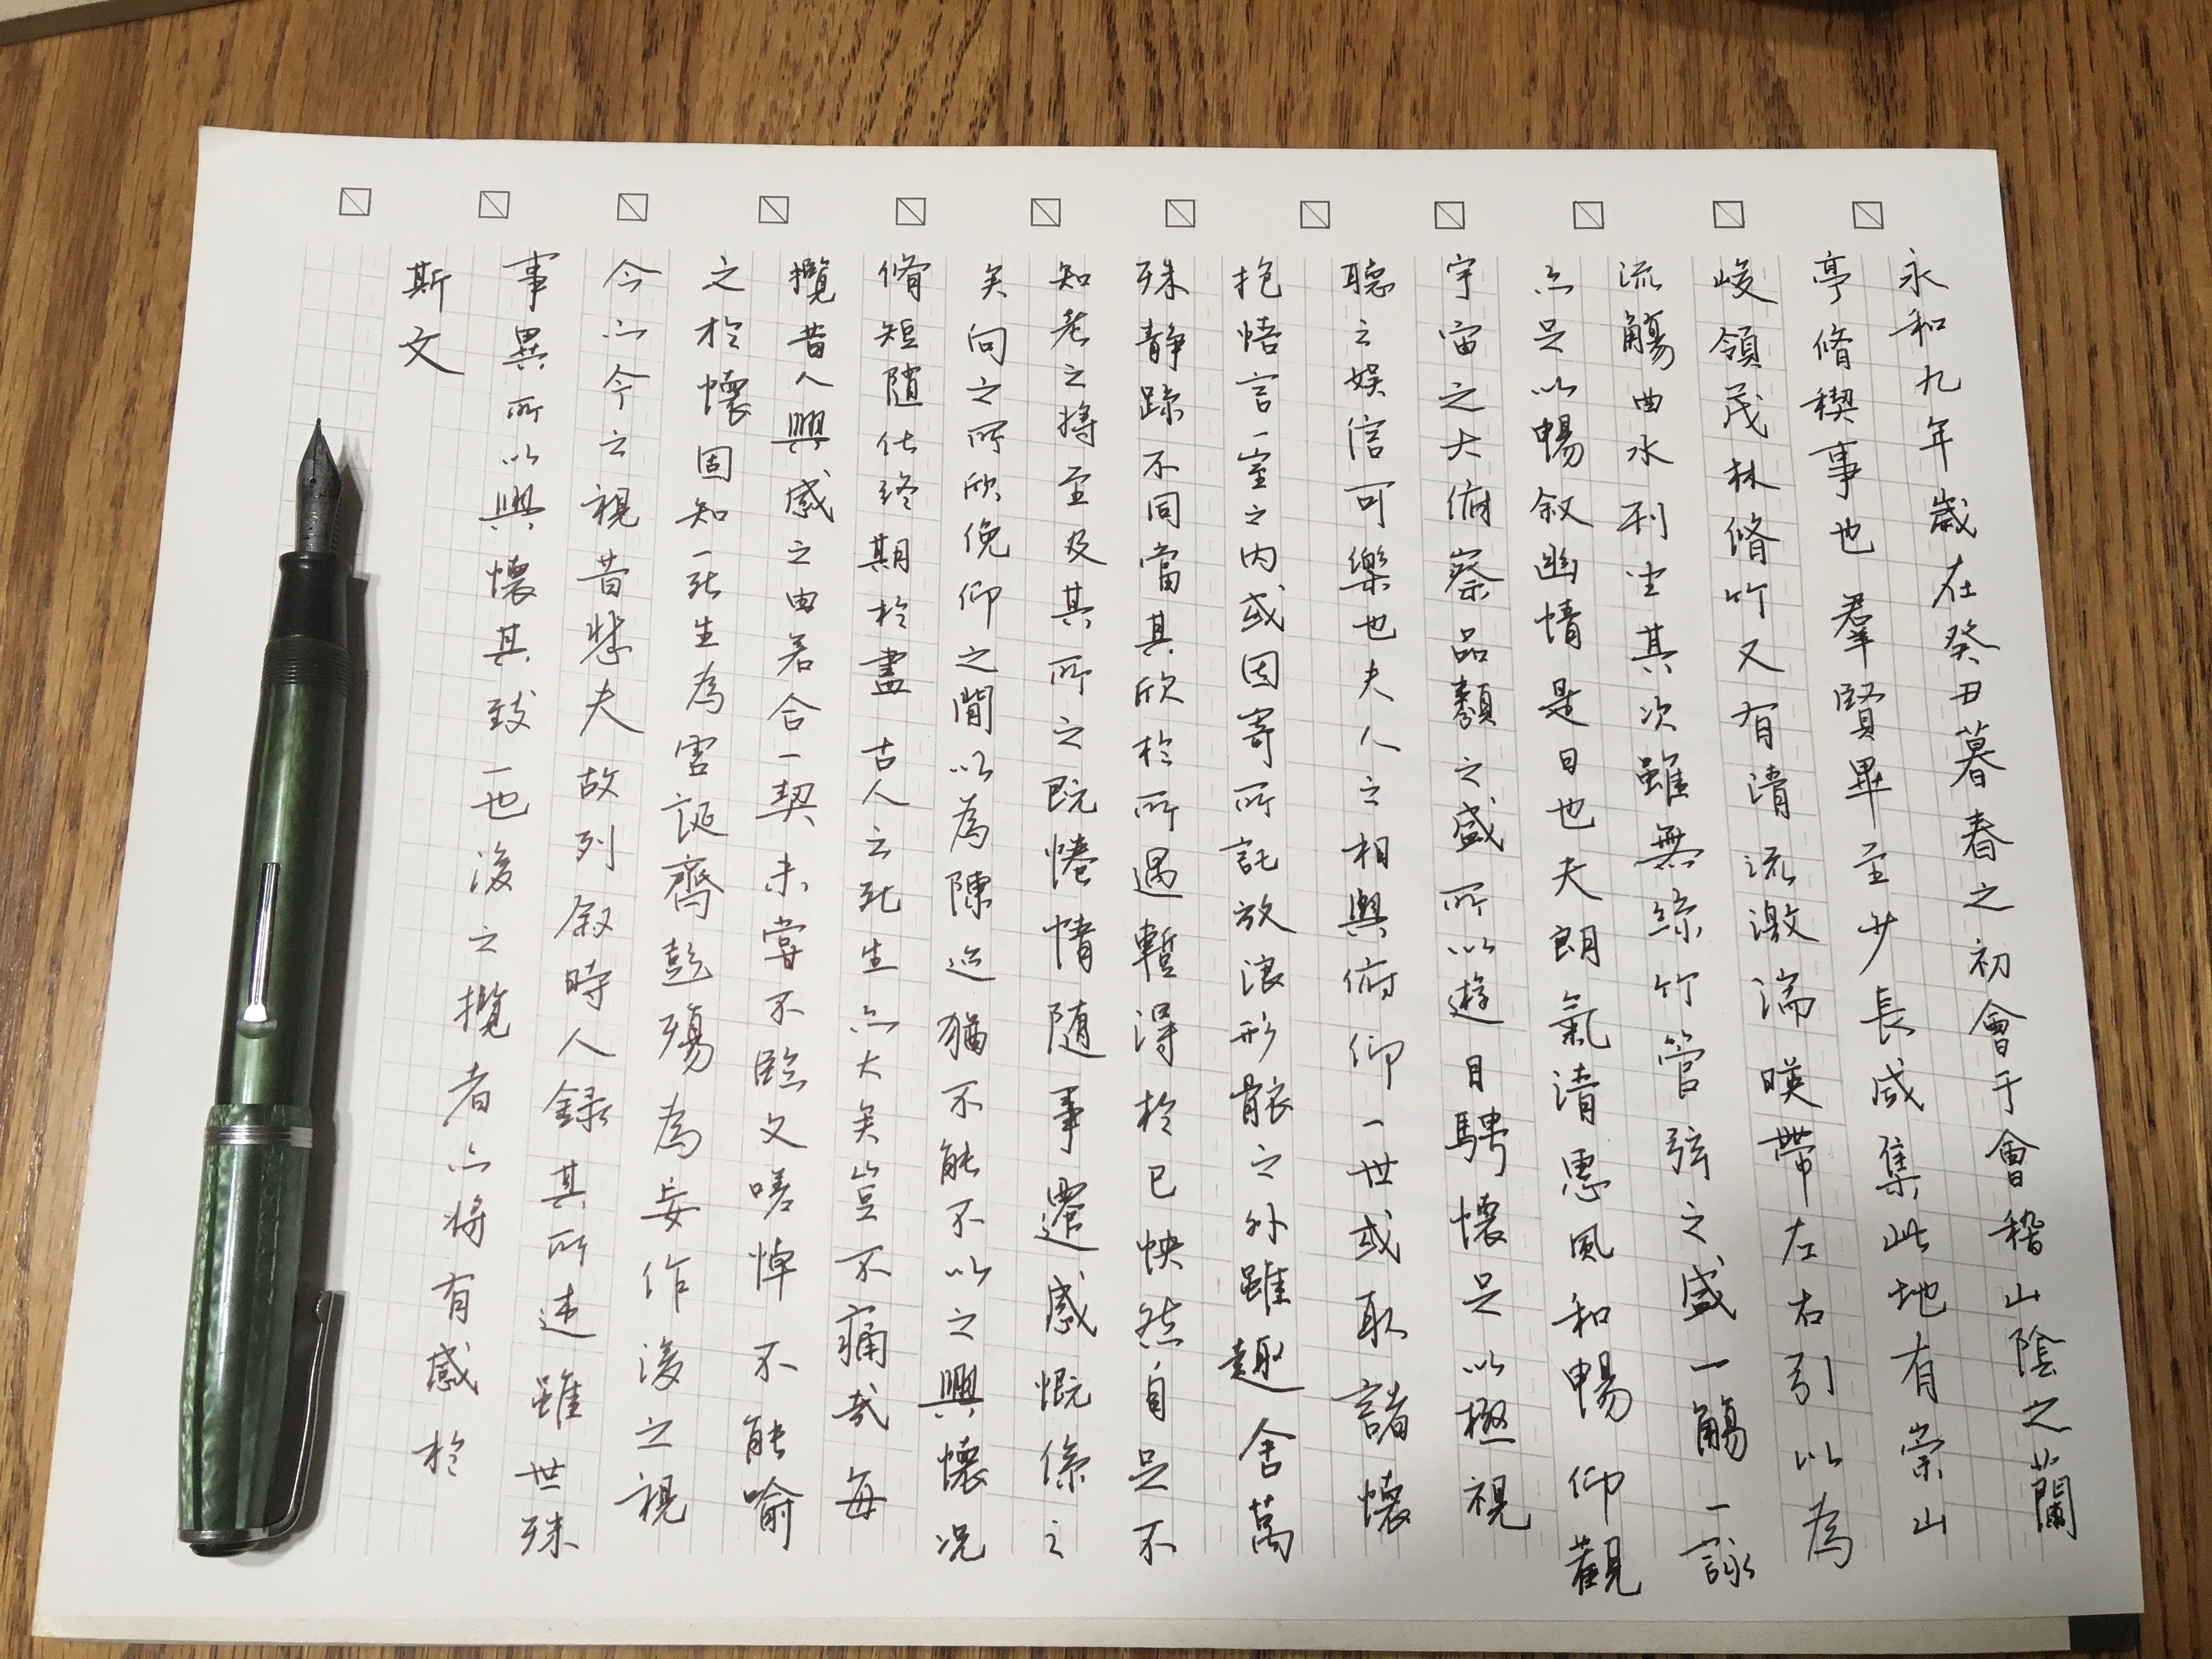 永和九年歲在癸丑暮春之初會于會稽山陰之蘭
亭脩稧事也羣賢畢至少長咸集此地有崇山
峻領茂林脩竹又有清流激湍暎帶左右引以為
流觴曲水列坐其次雖無絲竹管弦之盛一觴一詠
亦足以暢叙幽情是日也天朗氣清惠風和暢仰觀
宇宙之大俯察品類之盛所以遊目騁懷足以極視
聽之娛信可樂也夫人之相與俯仰一世或取諸懷
抱悟言一室之內或因寄所託放浪形骸之外雖趣舍萬
殊靜躁不同當其欣於所遇暫得於己怏然自足不
知老之將至及其所之既惓情隨事遷感慨係之
矣向之所欣俛仰之間以為陳迹猶不能不以之興懷況
脩短隨化終期於盡古人云死生亦大矣豈不痛哉每
攬昔人興感之由若合一契未嘗不臨文嗟悼不能喻
之於懷固知一死生為虛誕齊彭殤為妄作後之視
今亦今之視昔悲夫故列叙時人錄其所述雖世殊
事異所以興懷其致一也後之攬者亦將有感於
斯文